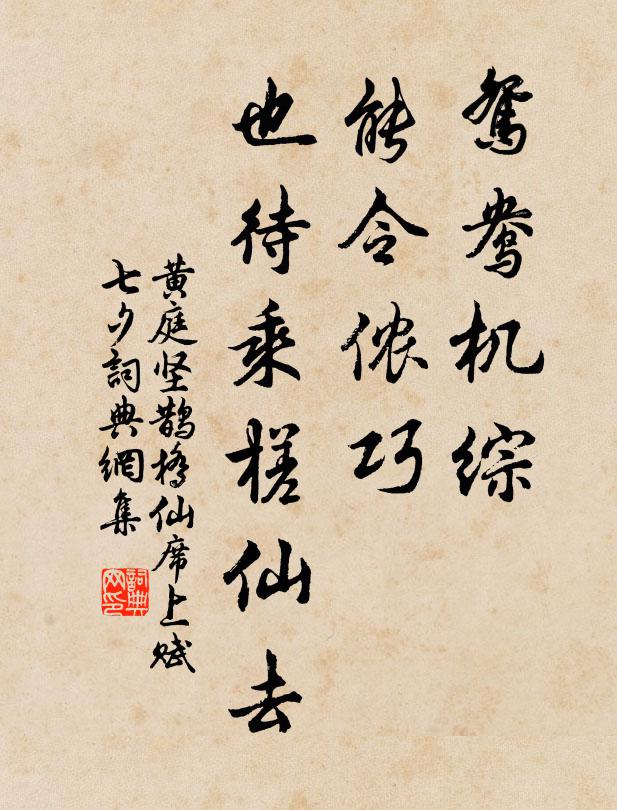 鸳鸯机综
能令侬巧
也待乘槎仙去
黄庭坚鹊桥仙席上赋
七夕词典网集
詞典网印